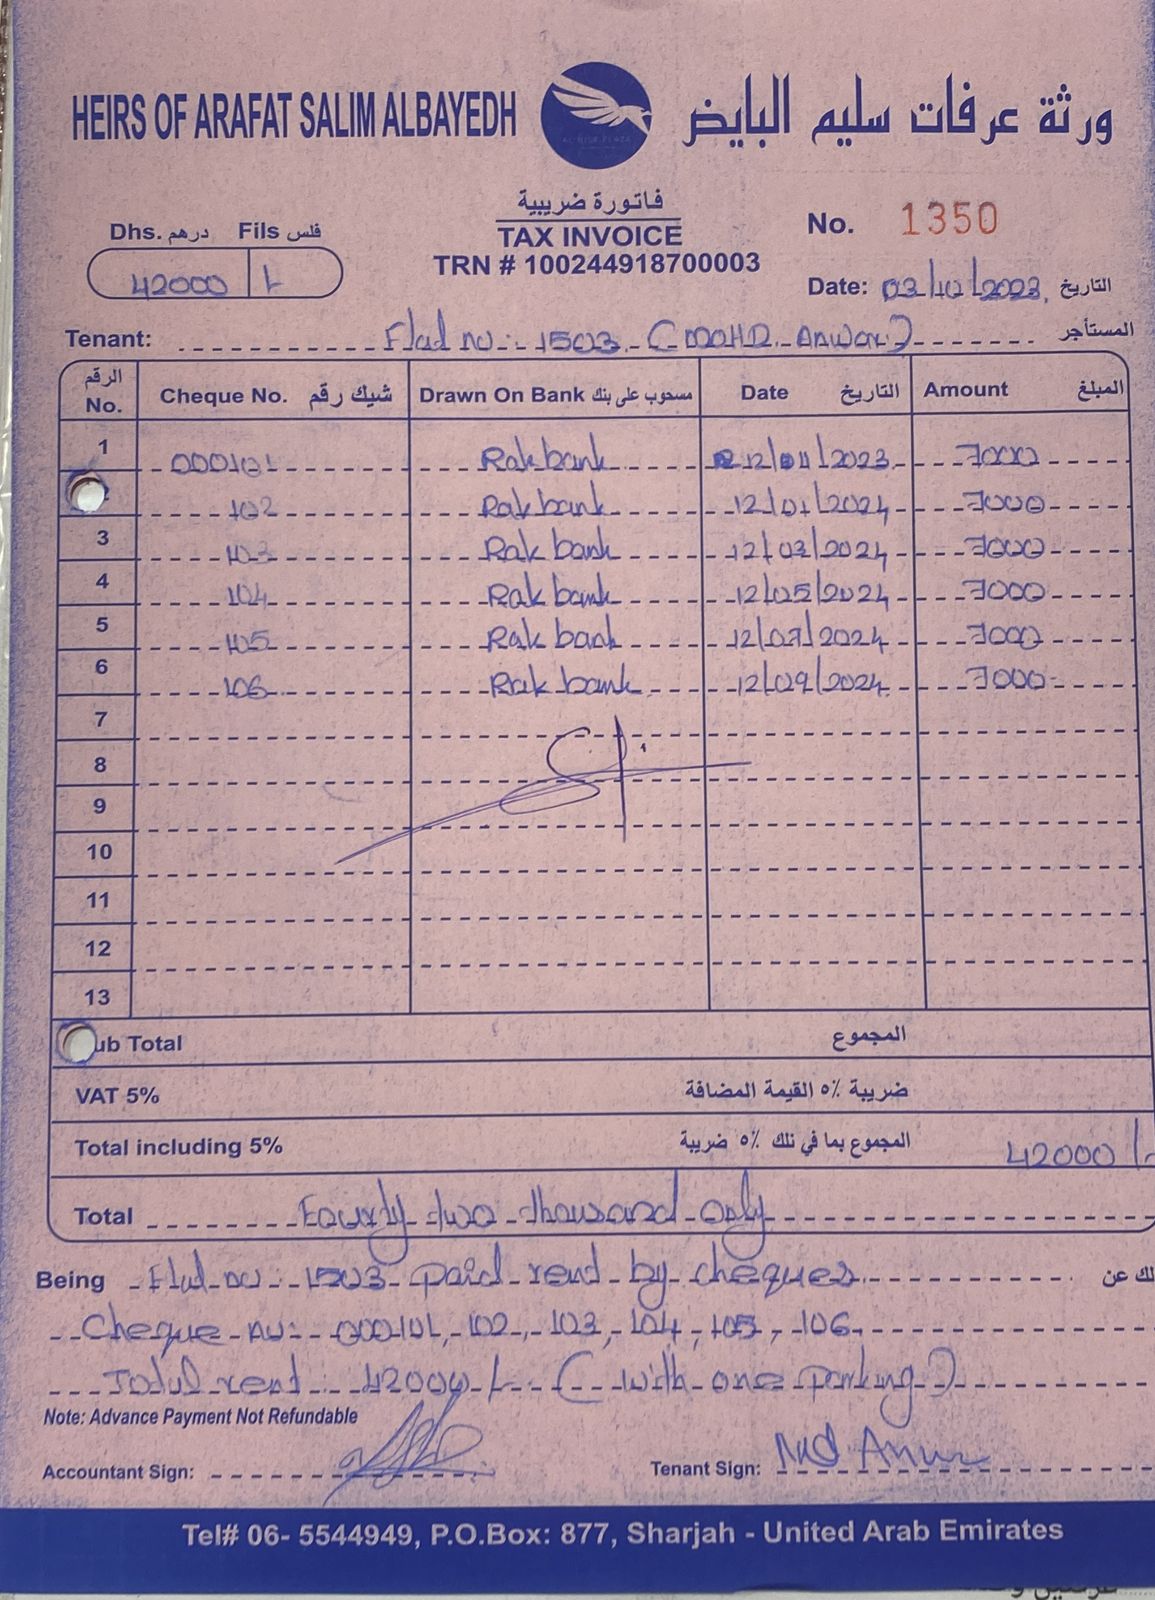 HEIRS OF ARAFAT SALIM ALBAYEDH ورثة عرفات سليم البايض
فاتورة ضريبية
TAX INVOICE
TRN # 100244918700003
Dhs. درهم Fils فلس
42000 /-
No. 1350
Date: 03/11/2023 التاريخ
Tenant: Flat no:- 1503 (MOHD. Anwar) المستأجر
الرقم No. Cheque No. شيك رقم Drawn On Bank مسحوب على بنك Date التاريخ Amount المبلغ
1 000101 Rak bank 12/11/2023 7000
102 Rak bank 12/01/2024 7000
3 103 Rak bank 12/03/2024 7000
4 104 Rak bank 12/05/2024 7000
5 105 Rak bank 12/07/2024 7000
6 106 Rak bank 12/09/2024 7000
7
8
9
10
11
12
13
ub Total المجموع
VAT 5% ضريبة ٥٪ القيمة المضافة
Total including 5% المجموع بما في ذلك ٥٪ ضريبة 42000/-
Total Fourty two thousand only
Being Flat no:- 1503 paid rent by cheques لك عن
Cheque no:- 000101, 102, 103, 104, 105, 106.
Total rent: 42000/- (with one parking)
Note: Advance Payment Not Refundable
Accountant Sign: Tenant Sign: Md Anwar
Tel# 06- 5544949, P.O.Box: 877, Sharjah - United Arab Emirates